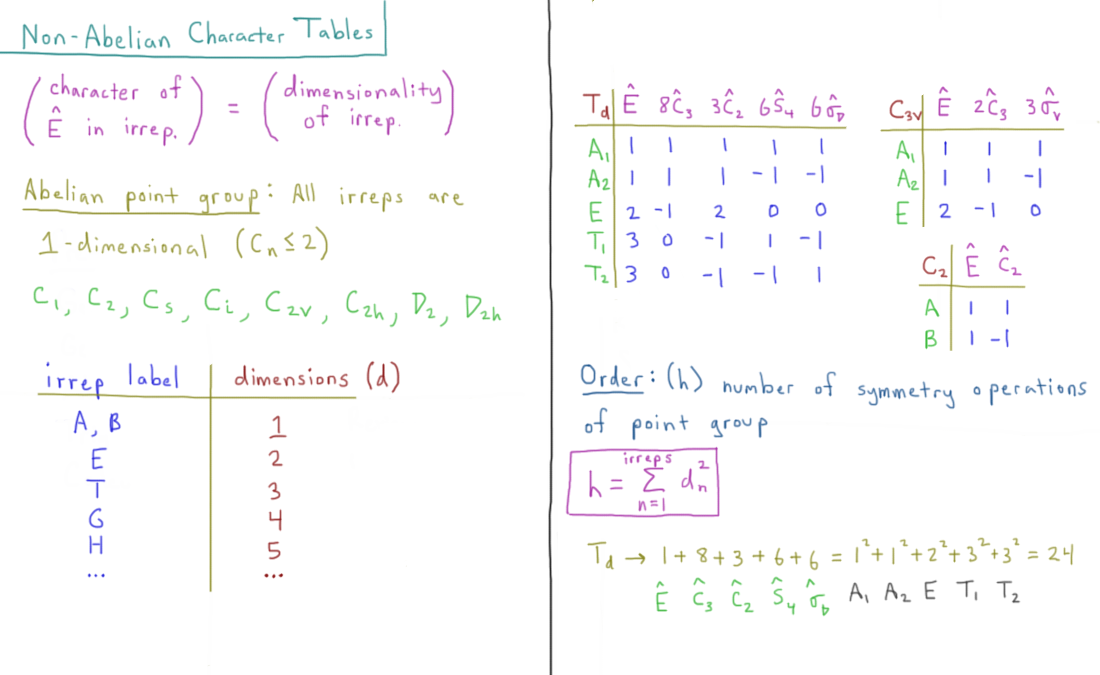 Non-Abelian Character Tables
(character of Ê in irrep.) = (dimensionality of irrep.)
Abelian point group: All irreps are
1-dimensional (Cₙ ≤ 2)
C₁, C₂, Cₛ, Cᵢ, C₂ᵥ, C₂ₕ, D₂, D₂ₕ
irrep label | dimensions (d)
A, B | 1
E | 2
T | 3
G | 4
H | 5
... | ...
T_d | Ê 8Ĉ₃ 3Ĉ₂ 6Ŝ₄ 6σ̂_D
A₁ | 1 1 1 1 1
A₂ | 1 1 1 -1 -1
E | 2 -1 2 0 0
T₁ | 3 0 -1 1 -1
T₂ | 3 0 -1 -1 1
C₃ᵥ | Ê 2Ĉ₃ 3σ̂ᵥ
A₁ | 1 1 1
A₂ | 1 1 -1
E | 2 -1 0
C₂ | Ê Ĉ₂
A | 1 1
B | 1 -1
Order: (h) number of symmetry operations
of point group
h = Σ_{n=1}^{irreps} dₙ²
T_d → 1 + 8 + 3 + 6 + 6 = 1² + 1² + 2² + 3² + 3² = 24
Ê Ĉ₃ Ĉ₂ Ŝ₄ σ̂_D A₁ A₂ E T₁ T₂